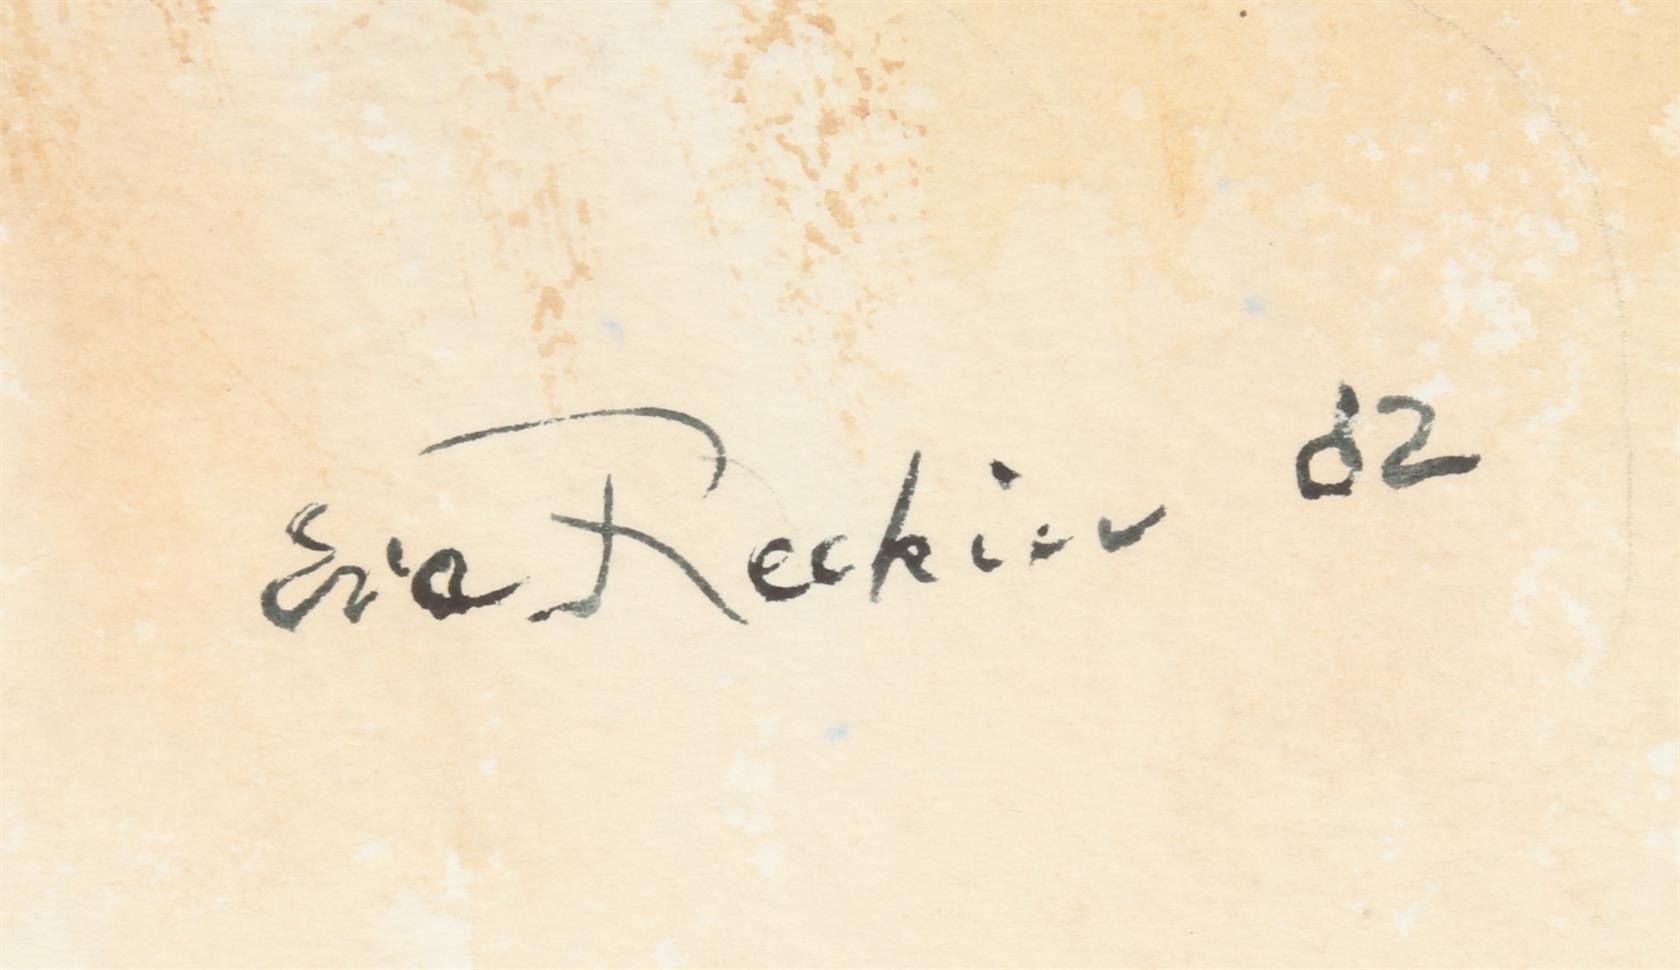 Eva Reckin 82